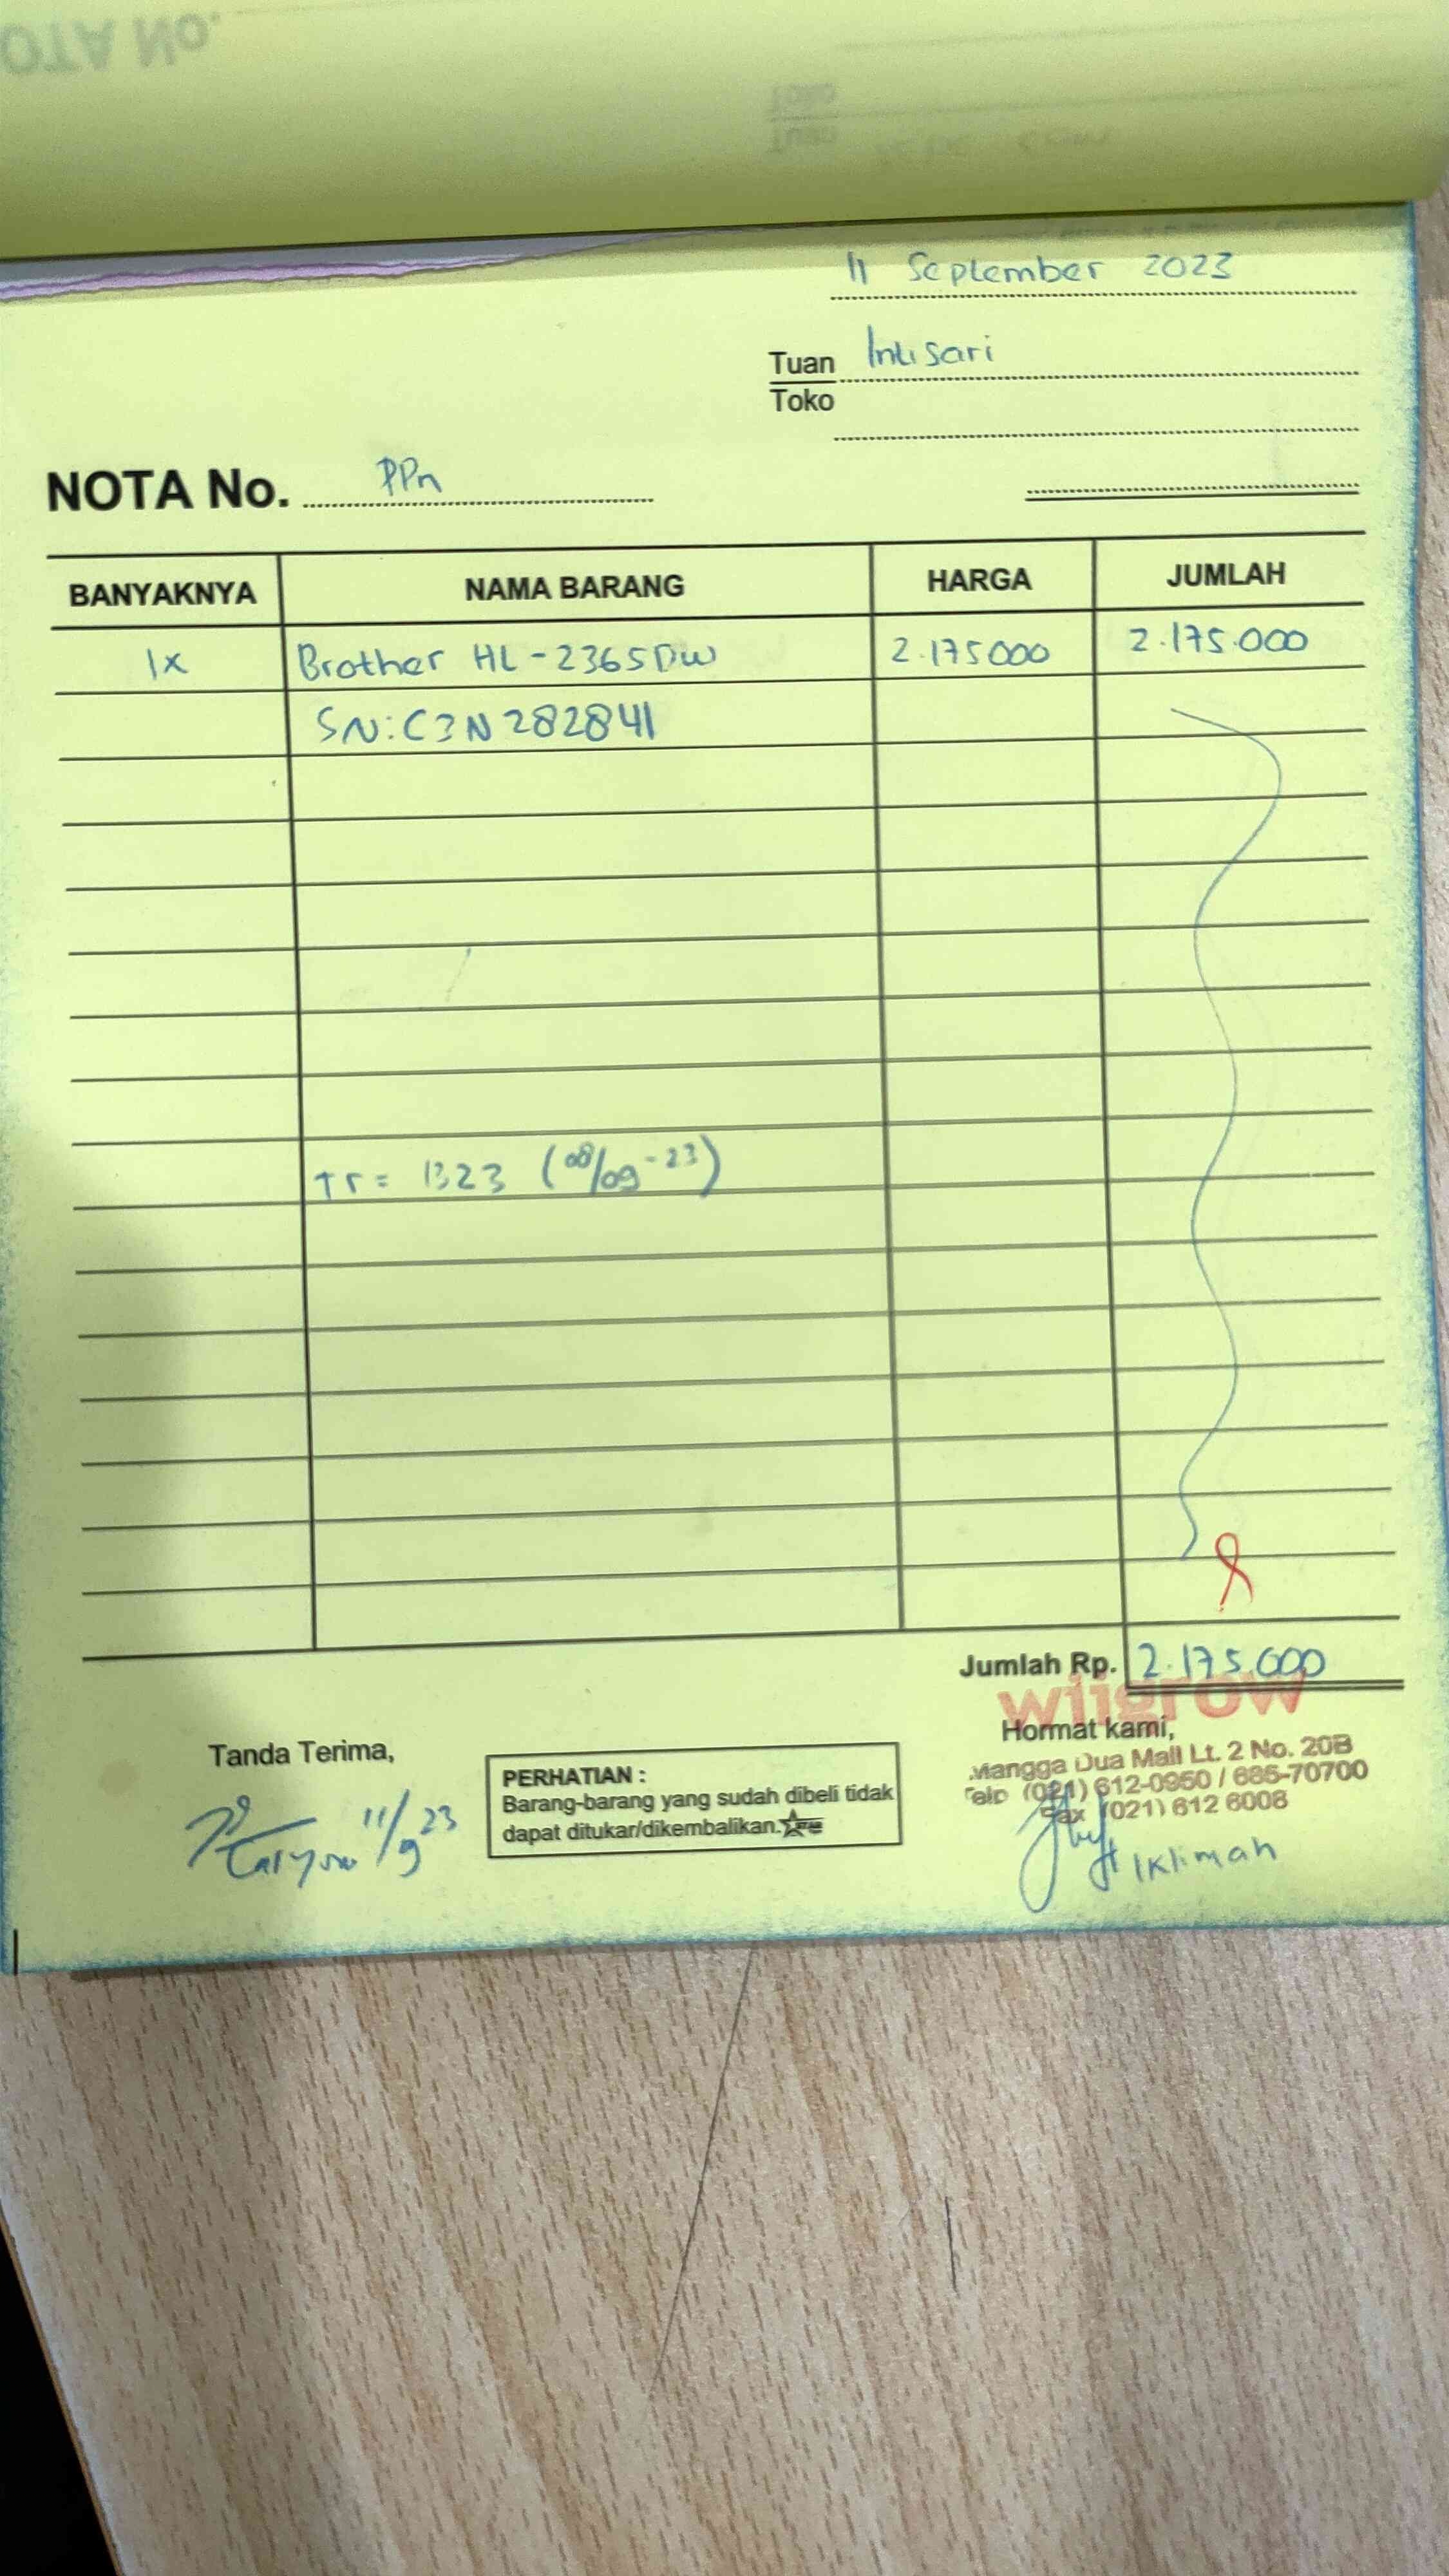 NOTA No.
Toko
Tuan
11 September 2023
Tuan Intisari
Toko
NOTA No. PPn
BANYAKNYA NAMA BARANG HARGA JUMLAH
1x Brother HL-2365DW 2.175000 2.175.000
SN: C3N282841
Tr = 1323 (08/09-23)
Jumlah Rp. 2.175.000
wijgrow
Tanda Terima, Hormat kami,
Mangga Dua Mall Lt. 2 No. 20B
Telp (021) 612-0950 / 685-70700
Fax (021) 612 6008
PERHATIAN :
Barang-barang yang sudah dibeli tidak
dapat ditukar/dikembalikan.
11/9 23
Iklimah